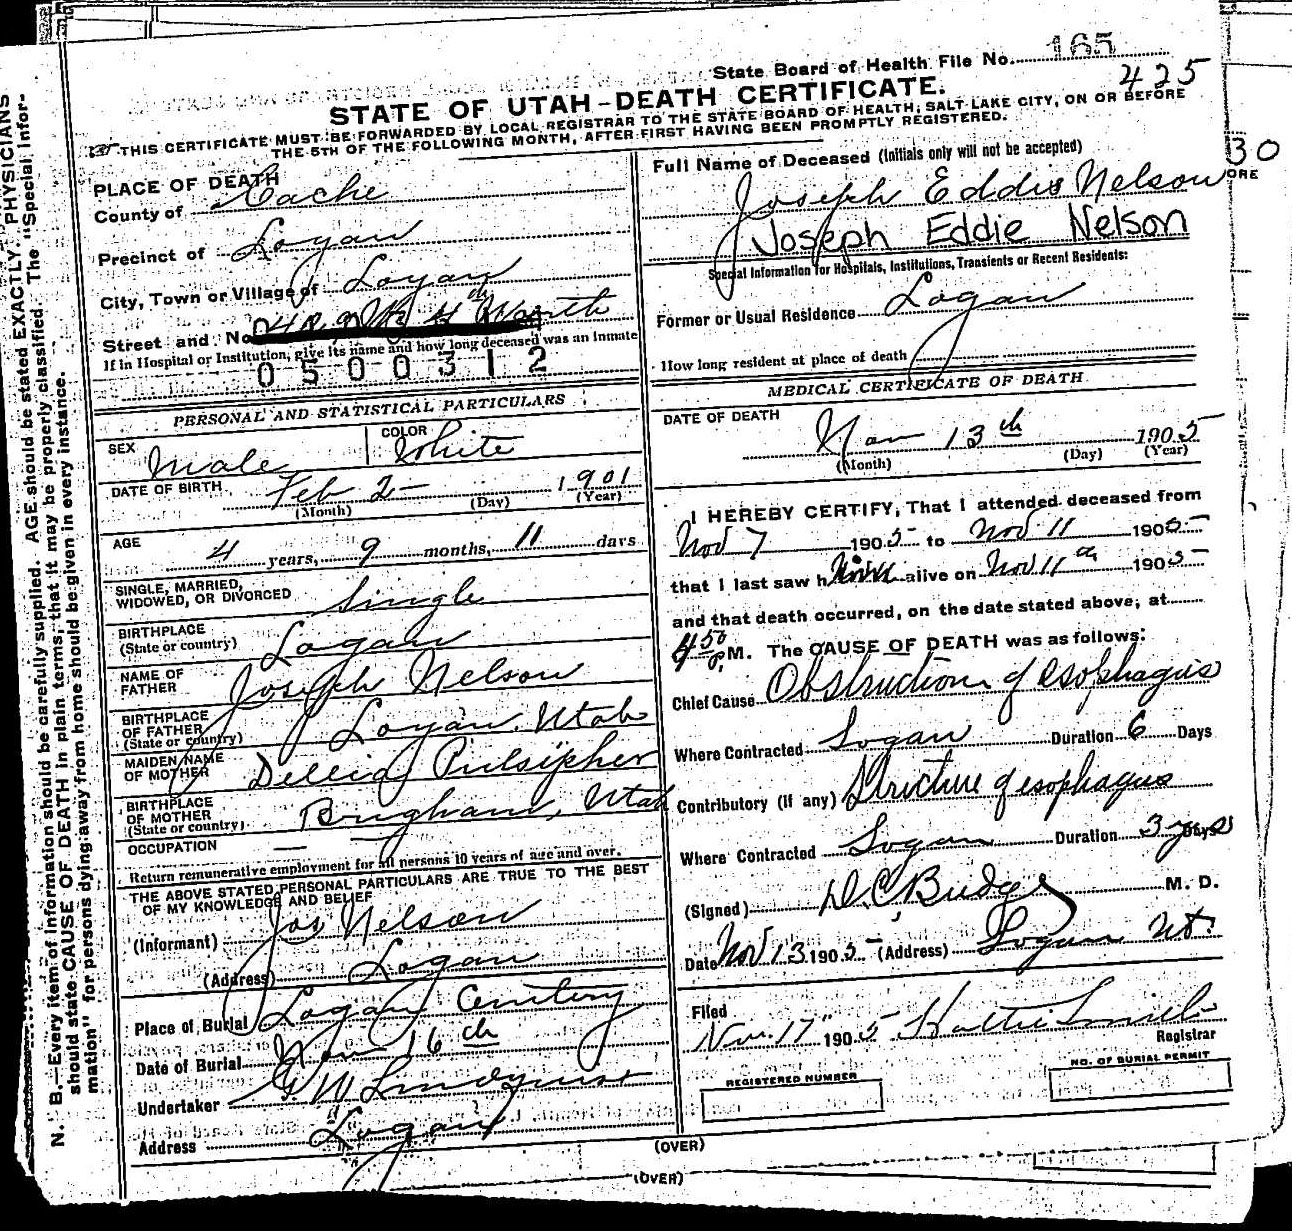 State Board of Health File No. 165
425
STATE OF UTAH-DEATH CERTIFICATE.
THIS CERTIFICATE MUST BE FORWARDED BY LOCAL REGISTRAR TO THE STATE BOARD OF HEALTH, SALT LAKE CITY, ON OR BEFORE
THE 5TH OF THE FOLLOWING MONTH, AFTER FIRST HAVING BEEN PROMPTLY REGISTERED.
30
ORE
PLACE OF DEATH
County of Cache
Precinct of Logan
City, Town or Village of Logan
Street and No.
If in Hospital or Institution, give its name and how long deceased was an Inmate
0500312
PERSONAL AND STATISTICAL PARTICULARS
SEX Male COLOR White
DATE OF BIRTH Feb 2 - 1901
(Month) (Day) (Year)
AGE 4 years, 9 months, 11 days
SINGLE, MARRIED,
WIDOWED, OR DIVORCED Single
BIRTHPLACE
(State or country) Logan
NAME OF
FATHER Joseph Nelson
BIRTHPLACE
OF FATHER
(State or country) Logan, Utah
MAIDEN NAME
OF MOTHER Pulsipher
BIRTHPLACE
OF MOTHER
(State or country) Brigham, Utah
OCCUPATION —
Return remunerative employment for all persons 10 years of age and over.
THE ABOVE STATED PERSONAL PARTICULARS ARE TRUE TO THE BEST
OF MY KNOWLEDGE AND BELIEF
(Informant) Jos Nelson
(Address) Logan
Place of Burial Logan Cemetery
Date of Burial Nov 16th
Undertaker G W Lindquist
Address Logan
Full Name of Deceased (Initials only will not be accepted)
Joseph Eddie Nelson
Joseph Eddie Nelson
Special Information for Hospitals, Institutions, Transients or Recent Residents:
Former or Usual Residence Logan
How long resident at place of death
MEDICAL CERTIFICATE OF DEATH
DATE OF DEATH
Nov 13th 1905
(Month) (Day) (Year)
I HEREBY CERTIFY, That I attended deceased from
Nov 7 1905 to Nov 11 1905
that I last saw him alive on Nov 11th 1905
and that death occurred, on the date stated above, at
4 50 P. M. The CAUSE OF DEATH was as follows:
Chief Cause Obstruction of esophagus
Where Contracted Logan Duration 6 Days
Contributory (If any) Stricture of esophagus
Where Contracted Logan Duration 3 yrs Days
(Signed) D. C. Budge M. D.
Date Nov 13 1905 (Address) Logan Ut.
Filed
Nov. 17" 1905 Hattie Smith
Registrar
REGISTERED NUMBER
NO. OF BURIAL PERMIT
(OVER)
(OVER)
N. B.—Every item of information should be carefully supplied. AGE should be stated EXACTLY. PHYSICIANS
should state CAUSE OF DEATH in plain terms, that it may be properly classified. The "Special Infor-
mation" for persons dying away from home should be given in every instance.